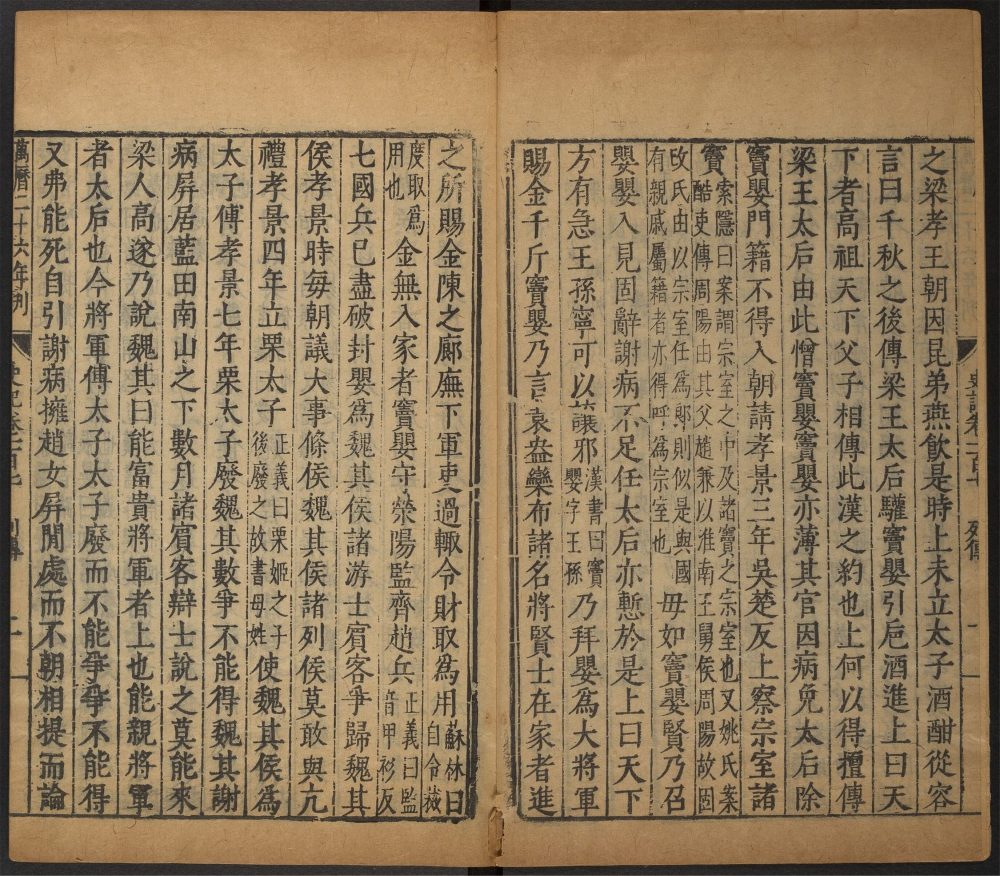 史記卷一百七 列傳 一
之梁孝王朝因昆弟燕飲是時上未立太子酒酣從容
言曰千秋之後傳梁王太后驩竇嬰引卮酒進上曰天
下者高祖天下父子相傳此漢之約也上何以得擅傳
梁王太后由此憎竇嬰竇嬰亦薄其官因病免太后除
竇嬰門籍不得入朝請孝景三年吳楚反上察宗室諸
竇索隱曰案謂宗室之中及諸竇之宗室也又姚氏案
酷吏傳周陽由其父趙兼以淮南王舅侯周陽故因
攺氏由以宗室任為郎則似是與國
有親戚屬籍者亦得呼為宗室也毋如竇嬰賢乃召
嬰嬰入見固辭謝病不足任太后亦慙於是上曰天下
方有急王孫寧可以讓邪漢書曰竇嬰字王孫乃拜嬰為大將軍
賜金千斤竇嬰乃言袁盎欒布諸名將賢士在家者進
之所賜金陳之廊廡下軍吏過輒令財取為用蘇林曰自令裁
度取為用也金無入家者竇嬰守滎陽監齊趙兵正義曰監音甲衫反
七國兵已盡破封嬰為魏其侯諸游士賓客爭歸魏其
侯孝景時每朝議大事條侯魏其侯諸列侯莫敢與亢
禮孝景四年立栗太子正義曰栗姬之子後廢之故書母姓使魏其侯為
太子傅孝景七年栗太子廢魏其數爭不能得魏其謝
病屏居藍田南山之下數月諸賓客辯士說之莫能來
梁人高遂乃說魏其曰能富貴將軍者上也能親將軍
者太后也今將軍傅太子太子廢而不能爭爭不能得
又弗能死自引謝病擁趙女屏閒處而不朝相提而論
萬曆二十六年刋 史記卷一百七 列傳 二